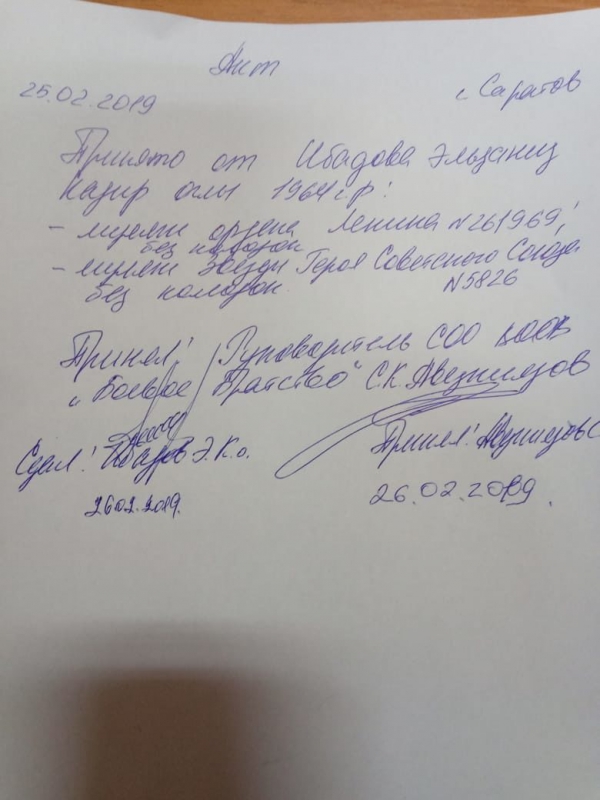 Акт
25.02.2019 г. Саратов
Принято от Ибадова Эльданиз
Кадир оглы 1964 г.р.:
- муляж ордена Ленина N261969,
без колодок
- муляж Звезды Героя Советского Союза
без колодок N5826
Принял: Руководитель СОО ВООВ
"Боевое Братство" С.К. Авезниязов
Сдал: Ибадов Э.К.о. Принял: Авезниязов С
26.02.2019. 26.02.2019.